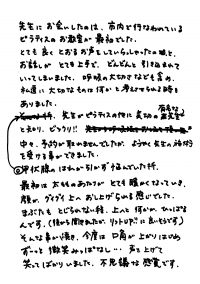 先生にお会いしたのは、市内で行なわれている
ピラティスのお教室が最初でした。
とても良くとおるお声としていらっしゃったの
お話しが とても上手で、どんどん 引き込まれて
いってしまいました。呼吸の大切さなども含め、
私達に大切なものは何かと考えさせられる時も
ありました。
先生がピラティスの他に
有名な
と知り、ビックリ!!
中々、予約が取れませんでしたが、ようやく先生の施術
を受ける事ができました。
甲状腺のはれが引かず悩んでいた時、
最初は 太もものあたりが とても暖かくなっていき、
顔が、グイグイ上へ おし上げられる感じでした。
まぶたも とじられない程、上へと 何かが、ひっぱる
んです。(後から聞きましたが、リフトUP!!に良いそうです)
そんな事が続き、今度は 口角が 上がりはじめ
ずーっと 微笑みっぱなし…… 声を上げて
笑ってばかりいました。不思議な感覚です。